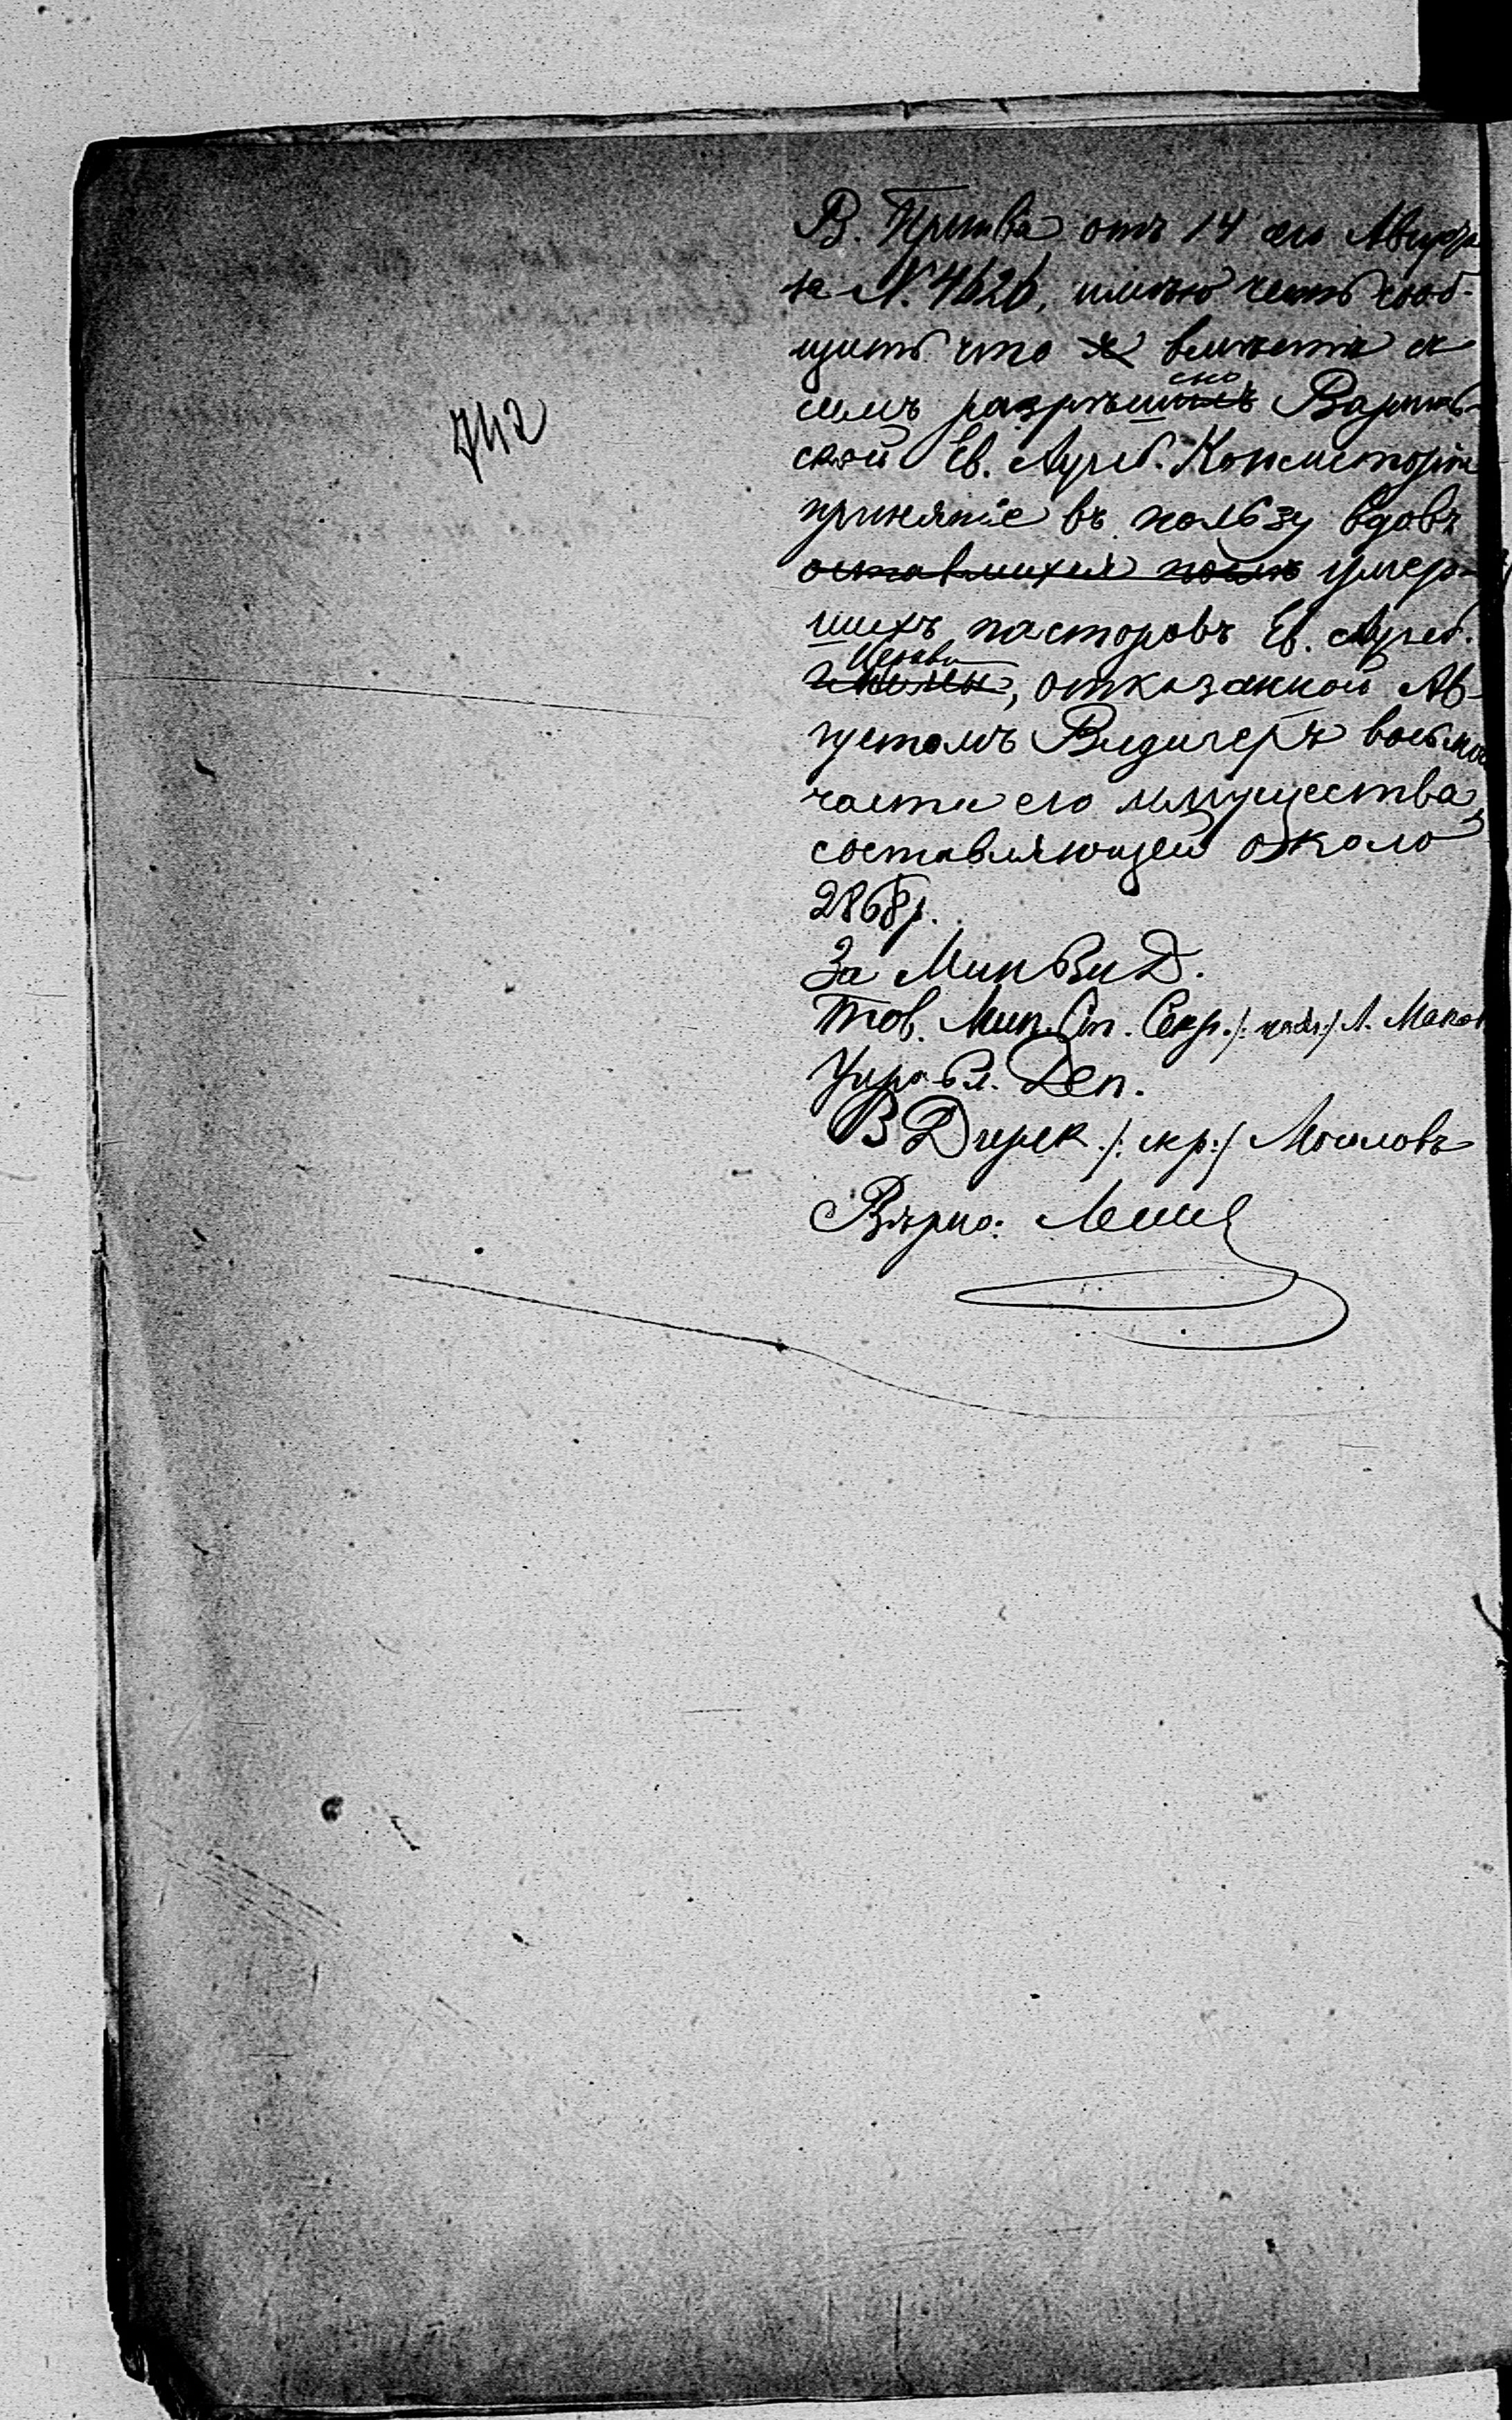 742
В. Пр-ства отъ 14 сего Августа
за N. 4626, имѣю честь сооб-
щить что вмѣстѣ съ
симъ разрѣшено Варшав-
ской Ев. Аугсб. Консисторіи
принятіе въ пользу вдовъ
оставшихся послѣ умер-
шихъ пасторовъ Ев. Аугсб.
Церкви
, отказанной Ав-
густомъ восьмой
части его имущества,
составляющей около
2868р.
За Мин Вн Д.
Тов. Мин. Ст. Секр. /: подп:/ Л. Маков
Управл. Деп.
В Дирек. /: скр:/ Мосоловъ
Вѣрно: